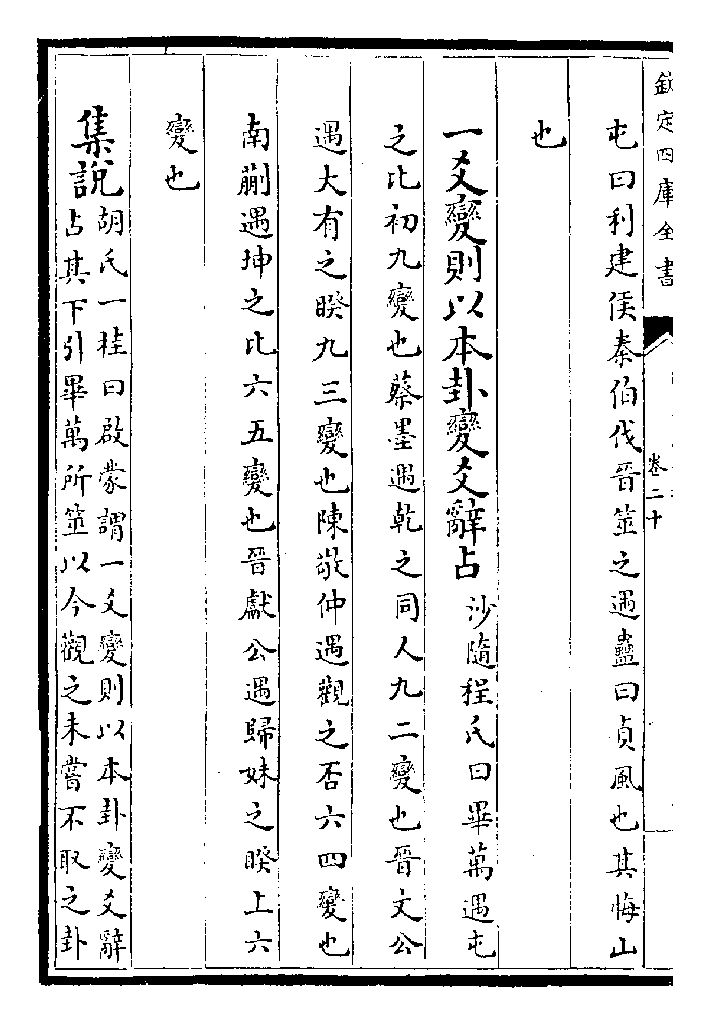 欽定四庫全書
卷二十
屯曰利建侯秦伯伐晉筮之遇蠱曰貞風也其悔山
也
一爻變則以本卦變爻辭占沙隨程氏曰畢萬遇屯
之比初九變也蔡墨遇乾之同人九二變也晉文公
遇大有之睽九三變也陳敬仲遇觀之否六四變也
南蒯遇坤之比六五變也晉獻公遇歸妹之睽上六
變也
集說胡氏一桂曰啟蒙謂一爻變則以本卦變爻辭
占其下引畢萬所筮以今觀之未嘗不取之卦